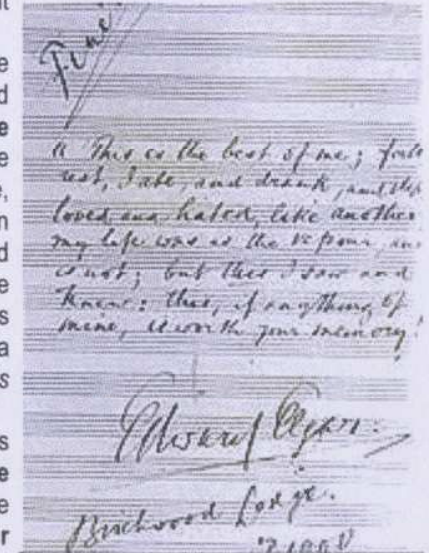 t
e
d
e
e
e,
n
d
e
s
a
s
s
e
e
r
Fine
" This is the best of me; for the
rest, I ate, and drank, and slept
loved and hated, like another
my life was as the vapour, and
is not; but this I saw and
knew: this, if anything of
mine, is worth your memory!
Edward Elgar.
Birchwood Lodge.
1900